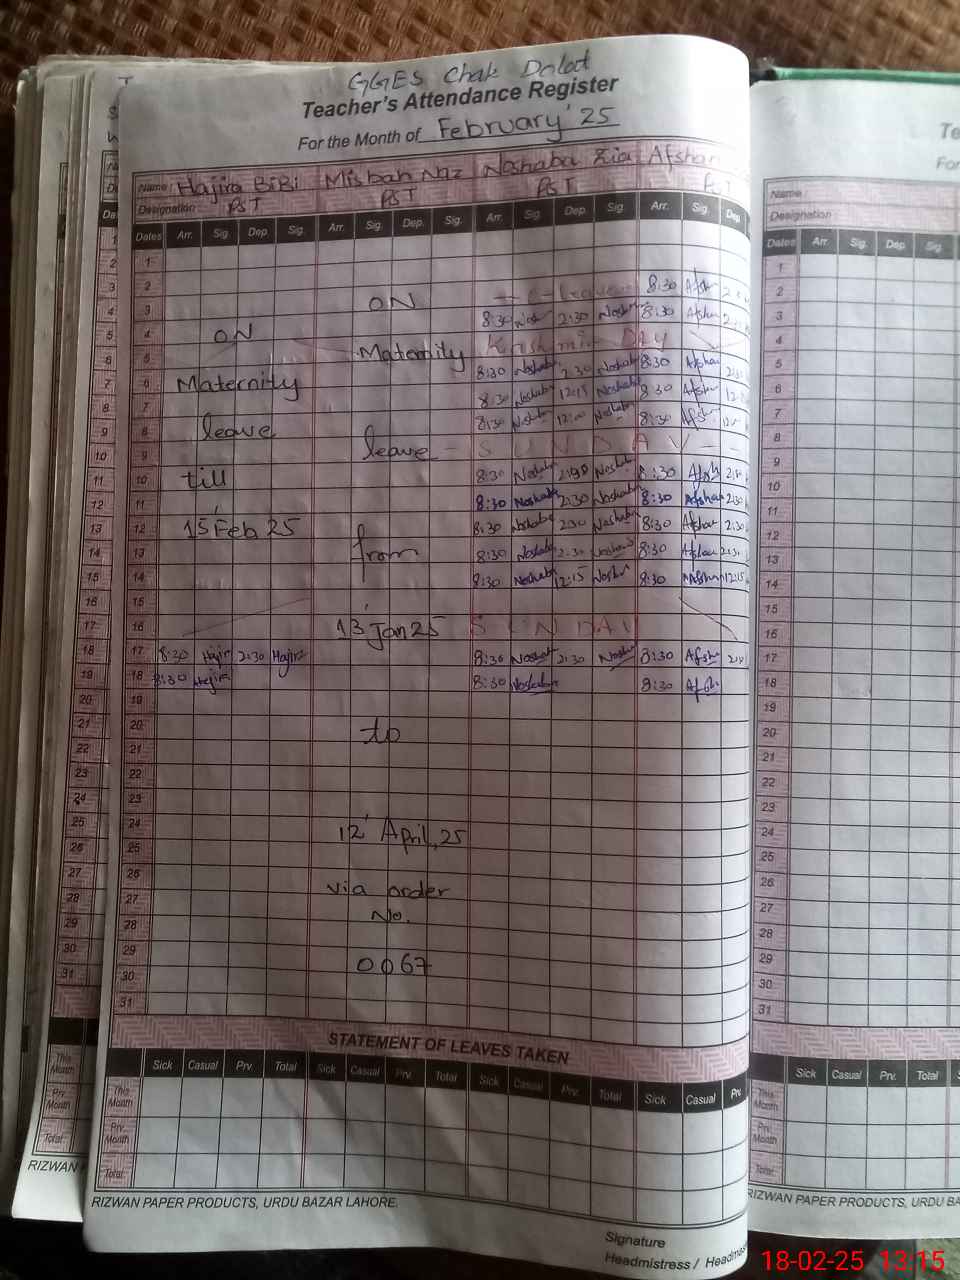 GGES Chak Dolat
Teacher's Attendance Register
For the Month of February' 25
Name: Hajira BiBi Misbah Naz Noshaba Zia Afshan
Designation PST PST PST PST
Dates Arr. Sig. Dep. Sig. Arr. Sig. Dep. Sig. Arr. Sig. Dep. Sig. Arr. Sig. Dep.
1
2
3 8:30 Afshan
4 ON 8:30 2:30 8:30 Afshan
5 ON Kashmir DAY
Maternity 8:30 Noshaba 2:30 Noshaba 8:30 Afshan
6 Maternity 8:30 Noshaba 12:15 Noshaba 8:30 Afshan
7 8:30 Noshaba 12:00 Noshaba 8:30 Afshan
8 leave
9 leave - SUNDAY -
10 till 8:30 Noshaba 2:30 Noshaba 8:30 Afsh
11 8:30 Noshaba 2:30 Noshaba 8:30 Afshan 2:30
12 15 Feb 25 8:30 Noshaba 2:30 Noshaba 8:30 Afshan 2:30
13 from 8:30 Noshaba 2:30 Noshaba 8:30 Afshan 2:30
14 8:30 Noshaba 12:15 Noshaba 8:30 Afshan 12:15
15
16 13 Jan 25 SUNDAY
17 8:30 Hajira 2:30 Hajira 8:30 Noshaba 2:30 Noshaba 8:30 Afsha
18 8:30 Hajira 8:30 Noshaba 8:30 Afsh
19
20 to
21
22
23
24 12 April, 25
25
26 via order
27 No.
28
29 0067
30
31
STATEMENT OF LEAVES TAKEN
Sick Casual Prv. Total Sick Casual Prv. Total Sick Casual Prv. Total Sick Casual Prv.
This Month
Prv. Month
Total
RIZWAN PAPER PRODUCTS, URDU BAZAR LAHORE.
Signature
Headmistress /
Name
Designation
Dates Arr. Sig. Dep. Sig.
1
2
3
4
5
6
7
8
9
10
11
12
13
14
15
16
17
18
19
20
21
22
23
24
25
26
27
28
29
30
31
Sick Casual Prv. Total
This Month
Prv. Month
Total
RIZWAN PAPER PRODUCTS, URDU
18-02-25 13:15